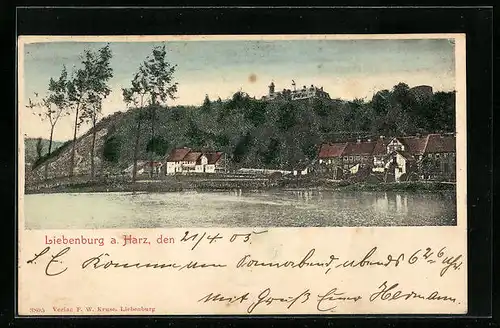 Liebenburg a. Harz, den 21/4 05
L. E. Komme am Sonnabend, abends 6 26 Uhr
Mit Gruß Euer Hermann
3805 Verlag F. W. Kruse, Liebenburg